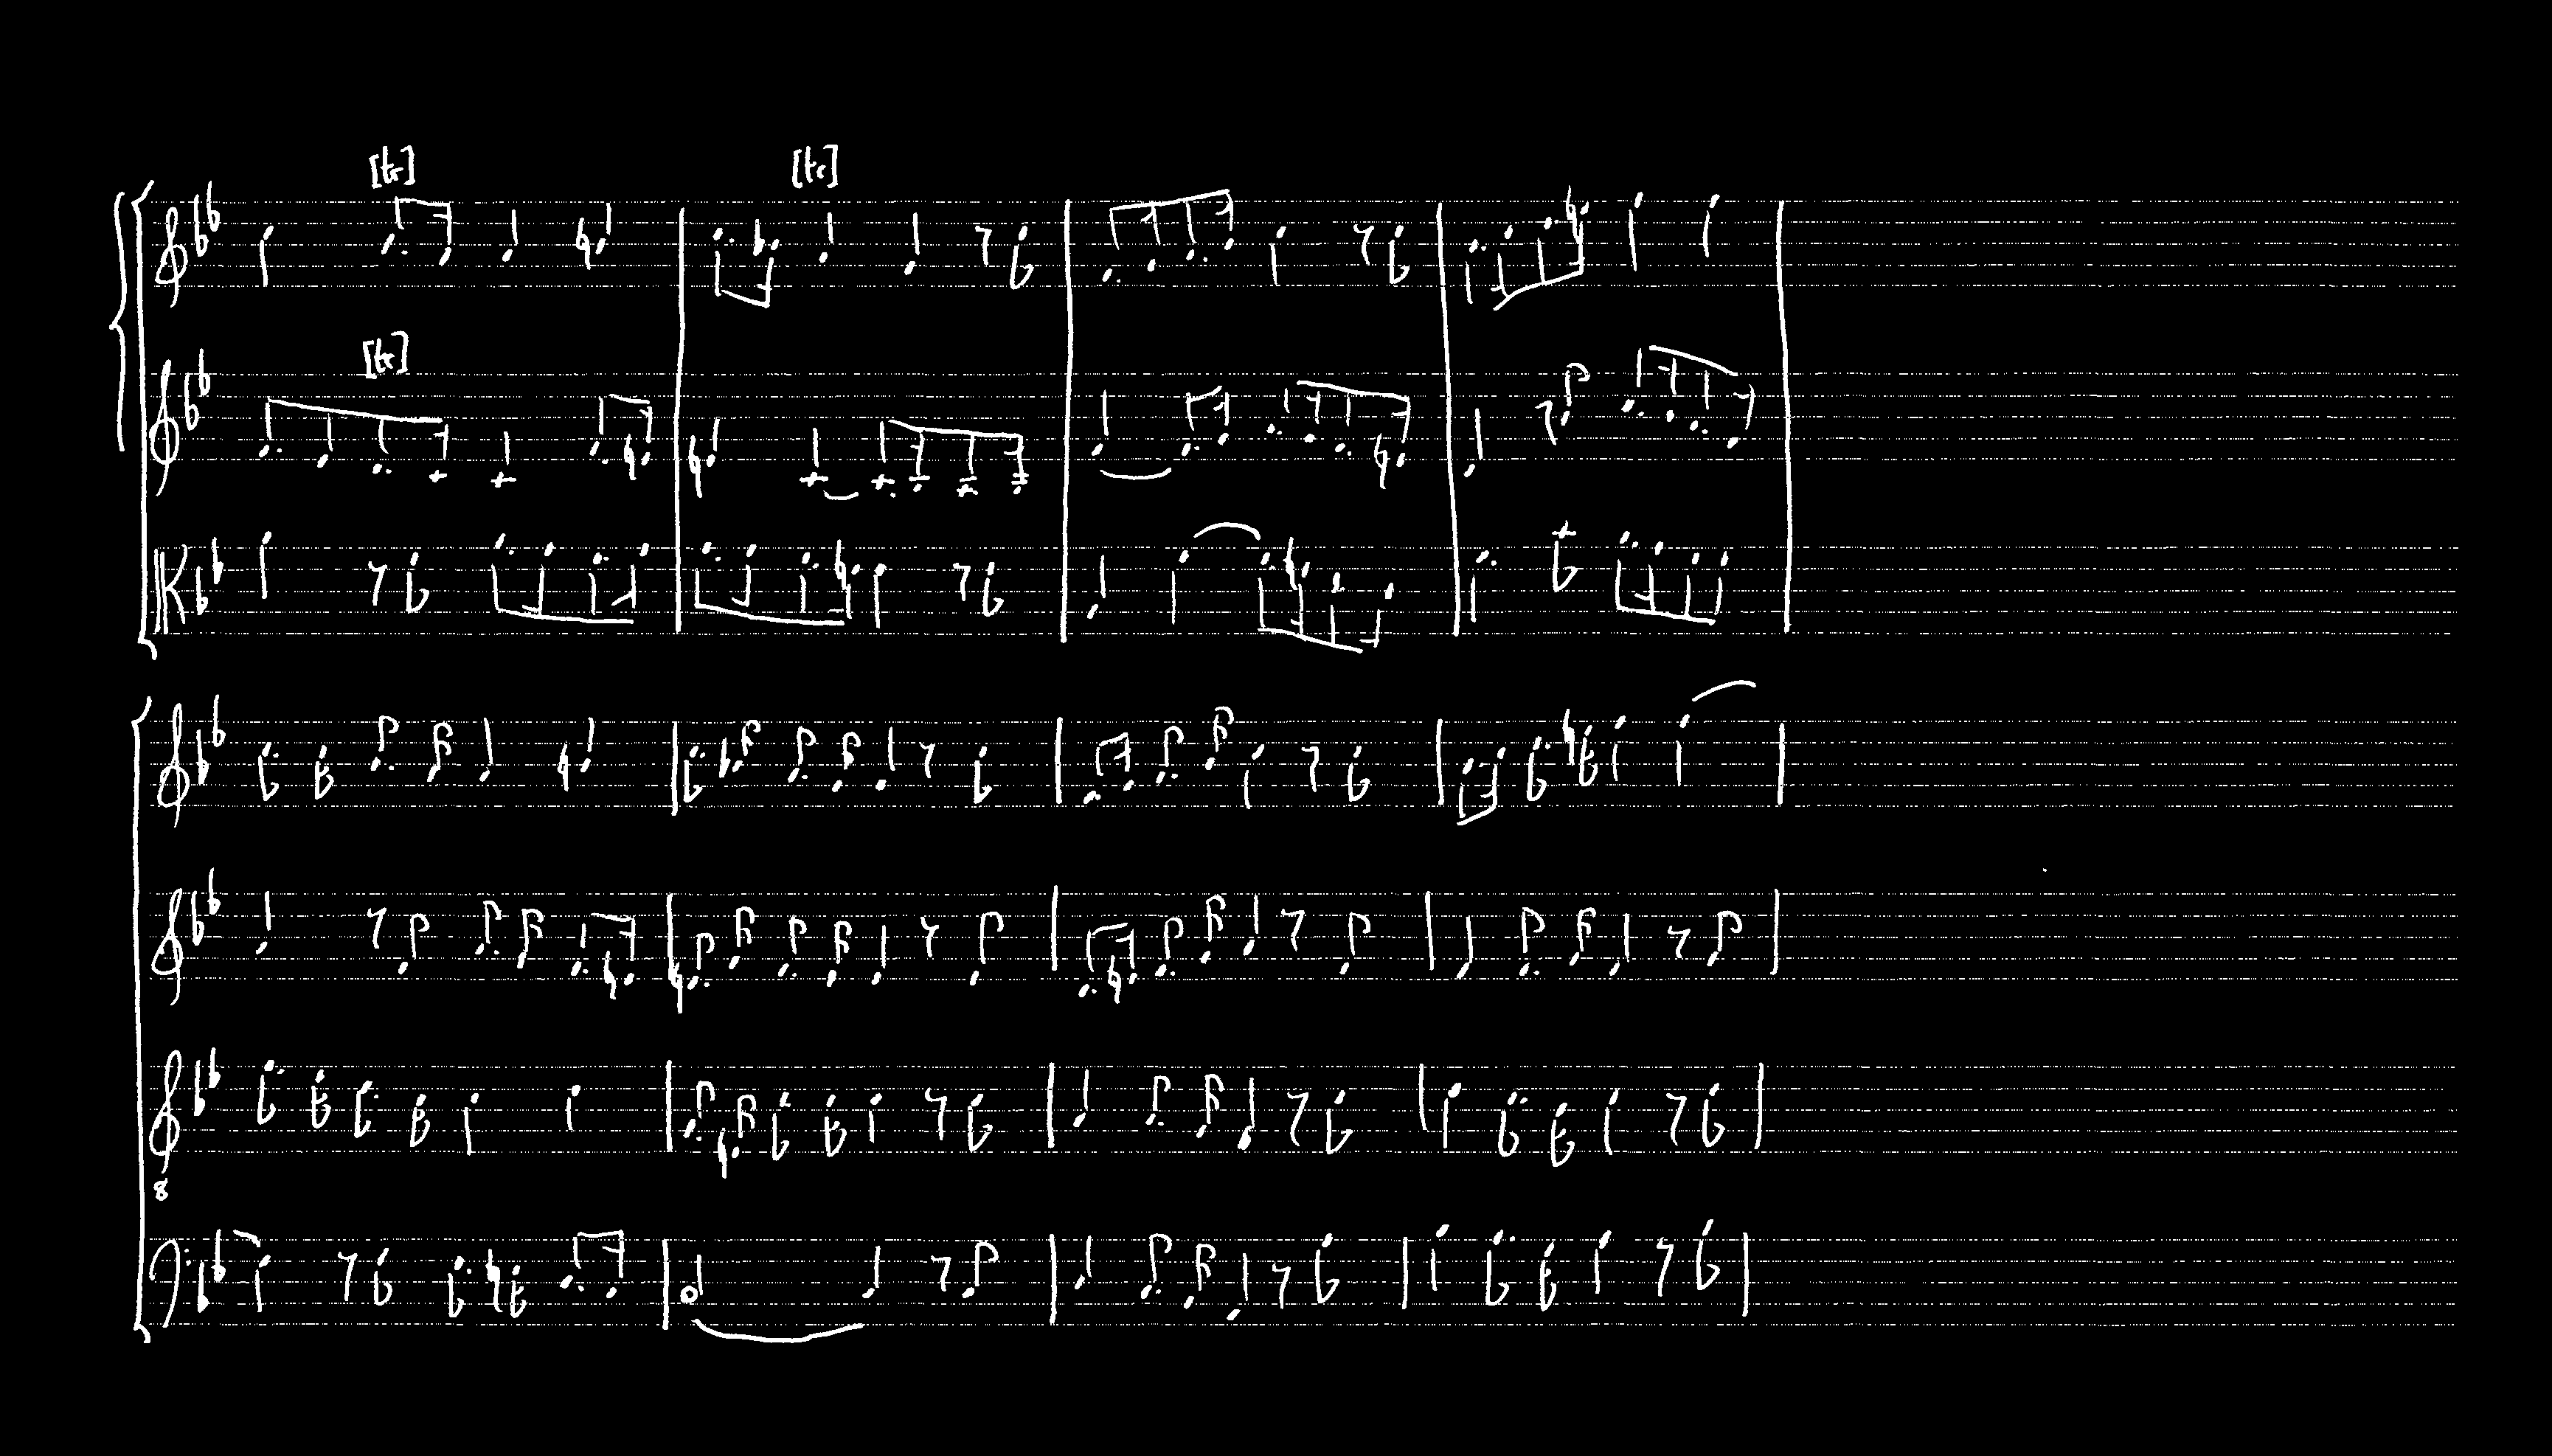 [tr] [tr]
[tr]
8